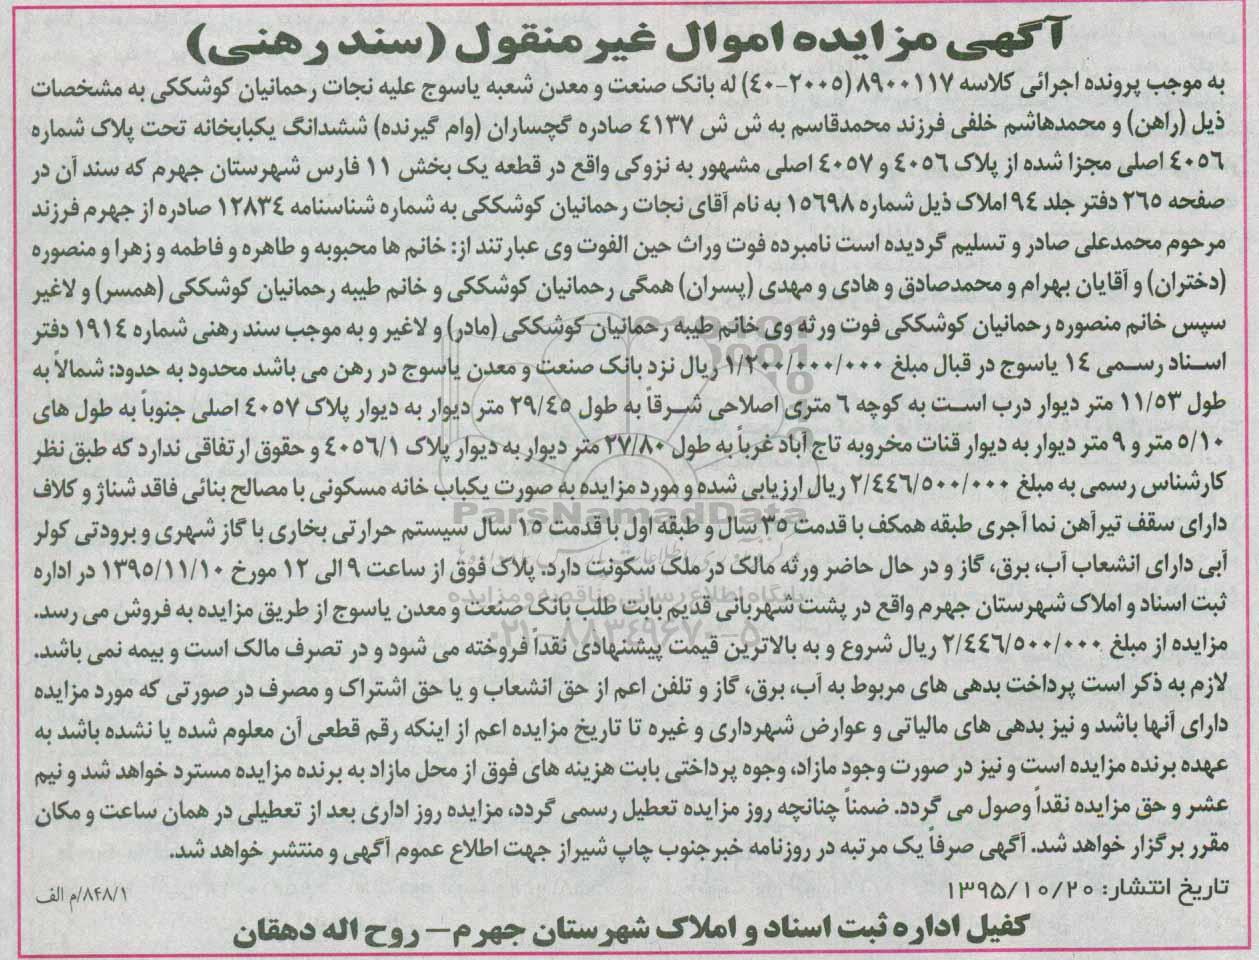 آگهی مزایده اموال غیر منقول (سند رهنی)
به موجب پرونده اجرائی کلاسه ۸۹۰۰۱۱۷ (۲۰۰۵-۴۰) له بانک صنعت و معدن شعبه یاسوج علیه نجات رحمانیان کوشککی به مشخصات
ذیل (راهن) و محمدهاشم خلفی فرزند محمدقاسم به ش ش ۴۱۳۷ صادره گچساران (وام گیرنده) ششدانگ یکبابخانه تحت پلاک شماره
۴۰۵۶ اصلی مجزا شده از پلاک ۴۰۵۶ و ۴۰۵۷ اصلی مشهور به نزوکی واقع در قطعه یک بخش ۱۱ فارس شهرستان جهرم که سند آن در
صفحه ۲۶۵ دفتر جلد ۹۴ املاک ذیل شماره ۱۵۶۹۸ به نام آقای نجات رحمانیان کوشککی به شماره شناسنامه ۱۲۸۳۴ صادره از جهرم فرزند
مرحوم محمدعلی صادر و تسلیم گردیده است نامبرده فوت وراث حین الفوت وی عبارتند از: خانم ها محبوبه و طاهره و فاطمه و زهرا و منصوره
(دختران) و آقایان بهرام و محمدصادق و هادی و مهدی (پسران) همگی رحمانیان کوشککی و خانم طیبه رحمانیان کوشککی (همسر) و لاغیر
سپس خانم منصوره رحمانیان کوشککی فوت ورثه وی خانم طیبه رحمانیان کوشککی (مادر) و لاغیر و به موجب سند رهنی شماره ۱۹۱۴ دفتر
اسناد رسمی ۱۴ یاسوج در قبال مبلغ ۱/۲۰۰/۰۰۰/۰۰۰ ریال نزد بانک صنعت و معدن یاسوج در رهن می باشد محدود به حدود: شمالاً به
طول ۱۱/۵۳ متر دیوار درب است به کوچه ۶ متری اصلاحی شرقاً به طول ۲۹/۴۵ متر دیوار به دیوار پلاک ۴۰۵۷ اصلی جنوباً به طول های
۵/۱۰ متر و ۹ متر دیوار به دیوار قنات مخروبه تاج آباد غرباً به طول ۲۷/۸۰ متر دیوار به دیوار پلاک ۴۰۵۶/۱ و حقوق ارتفاقی ندارد که طبق نظر
کارشناس رسمی به مبلغ ۲/۴۴۶/۵۰۰/۰۰۰ ریال ارزیابی شده و مورد مزایده به صورت یکباب خانه مسکونی با مصالح بنائی فاقد شناژ و کلاف
دارای سقف تیرآهن نما آجری طبقه همکف با قدمت ۳۵ سال و طبقه اول با قدمت ۱۵ سال سیستم حرارتی بخاری با گاز شهری و برودتی کولر
آبی دارای انشعاب آب، برق، گاز و در حال حاضر ورثه مالک در ملک سکونت دارد. پلاک فوق از ساعت ۹ الی ۱۲ مورخ ۱۳۹۵/۱۱/۱۰ در اداره
ثبت اسناد و املاک شهرستان جهرم واقع در پشت شهربانی قدیم بابت طلب بانک صنعت و معدن یاسوج از طریق مزایده به فروش می رسد.
مزایده از مبلغ ۲/۴۴۶/۵۰۰/۰۰۰ ریال شروع و به بالاترین قیمت پیشنهادی نقداً فروخته می شود و در تصرف مالک است و بیمه نمی باشد.
لازم به ذکر است پرداخت بدهی های مربوط به آب، برق، گاز و تلفن اعم از حق انشعاب و یا حق اشتراک و مصرف در صورتی که مورد مزایده
دارای آنها باشد و نیز بدهی های مالیاتی و عوارض شهرداری و غیره تا تاریخ مزایده اعم از اینکه رقم قطعی آن معلوم شده یا نشده باشد به
عهده برنده مزایده است و نیز در صورت وجود مازاد، وجوه پرداختی بابت هزینه های فوق از محل مازاد به برنده مزایده مسترد خواهد شد و نیم
عشر و حق مزایده نقداً وصول می گردد. ضمناً چنانچه روز مزایده تعطیل رسمی گردد، مزایده روز اداری بعد از تعطیلی در همان ساعت و مکان
مقرر برگزار خواهد شد. آگهی صرفاً یک مرتبه در روزنامه خبرجنوب چاپ شیراز جهت اطلاع عموم آگهی و منتشر خواهد شد.
تاریخ انتشار: ۱۳۹۵/۱۰/۲۰
۸۴۸/۱/م الف
کفیل اداره ثبت اسناد و املاک شهرستان جهرم - روح اله دهقان
ParsNamadData
پایگاه اطلاع رسانی مناقصه و مزایده
۰۲۱-۸۸۳۴۹۶۷۰-۵